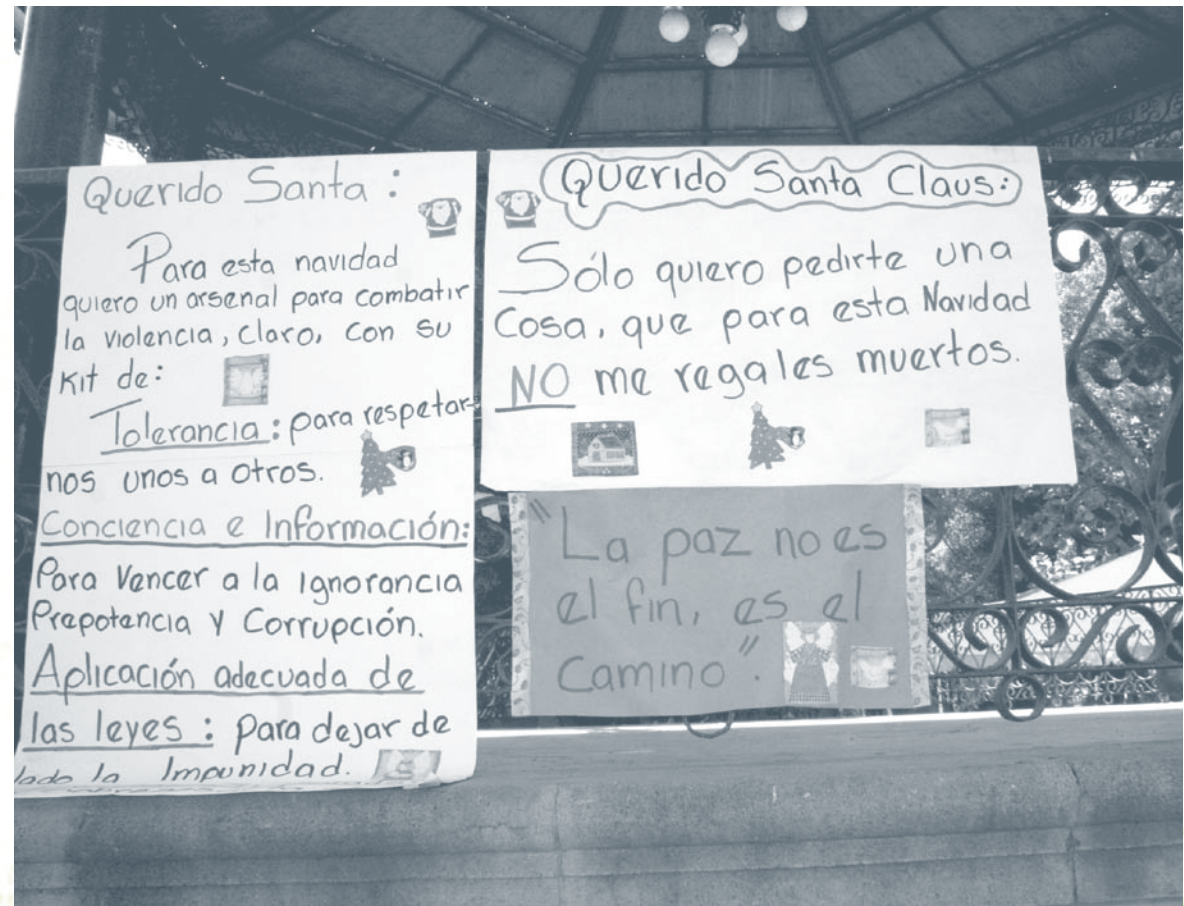 Querido Santa :
Para esta navidad
quiero un arsenal para combatir
la violencia, claro, con su
Kit de:
Tolerancia: para respetar-
nos unos a otros.
Conciencia e Información:
Para Vencer a la ignorancia
Prepotencia y Corrupción.
Aplicación adecuada de
las leyes : para dejar de
lado la Impunidad.
Querido Santa Claus:
Sólo quiero pedirte una
Cosa, que para esta Navidad
NO me regales muertos.
"La paz no es
el fin, es el
camino".